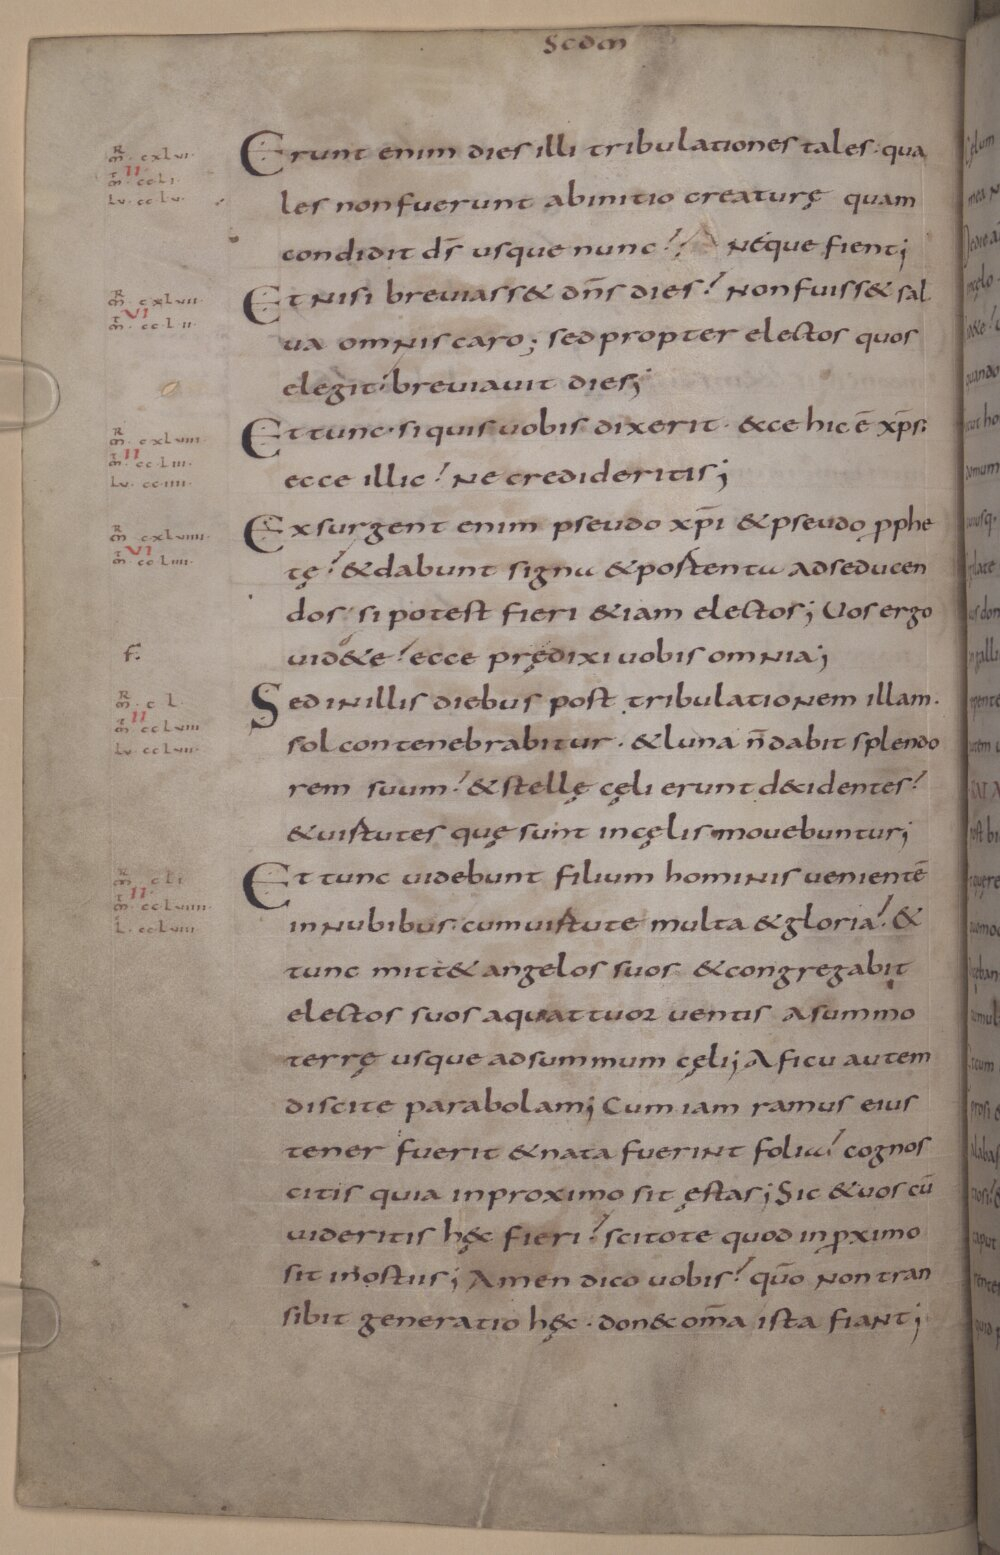 Scdm
Mr. cxlvi.
II
Mt. ccli.
Lu. cclv.
Erunt enim dies illi tribulationes tales. qua
les non fuerunt ab initio creaturę quam
condidit ds̄ usque nunc? Neque fient;
Mr. cxlvii.
VI
Mt. cclii.
Et nisi breviass& dn̄s dies? Non fuiss& sal
va omnis caro; sed propter electos quos
elegit? breviavit dies;
Mr. cxlviii.
II
Mt. ccliii.
Lu. cciiii.
Et tunc. si quis vobis dixerit. &cce hic ē xp̄s:
ecce illic? Ne credideritis;
Mr. cxlviiii.
VI
Mt. ccliiii.
Exsurgent enim pseudo xp̄i & pseudo pphe
tę? & dabunt signa & postenta ad seducen
dos si potest fieri &iam electos; Vos ergo
vid&e? ecce prędixi vobis omnia;
Mr. cl.
II
Mt. cclviii
Lu. cclvii.
Sed in illis diebus post tribulationem illam.
sol contenebrabitur. & luna n̄ dabit splendo
rem suum? & stellę cęli erunt d&identes?
& vistutes quę sunt in cęlis movebuntur;
Mr. cli.
II
Mt. cclviiii.
L. cclviii.
Et tunc videbunt filium hominis venientē
in nubibus. cum vistute multa & gloria? &
tunc mitt& angelos suos & congregabit
electos suos a quattuor ventis A summo
terrę usque ad summum cęli; A ficu autem
discite parabolam; Cum iam ramus eius
tener fuerit & nata fuerint folia? cognos
citis quia in proximo sit ęstas; Sic & vos cū
videritis hęc fieri? scitote quod in pximo
sit in ostiis; Amen dico vobis? qūo non tran
sibit generatio hęc. don&c om̄a ista fiant;